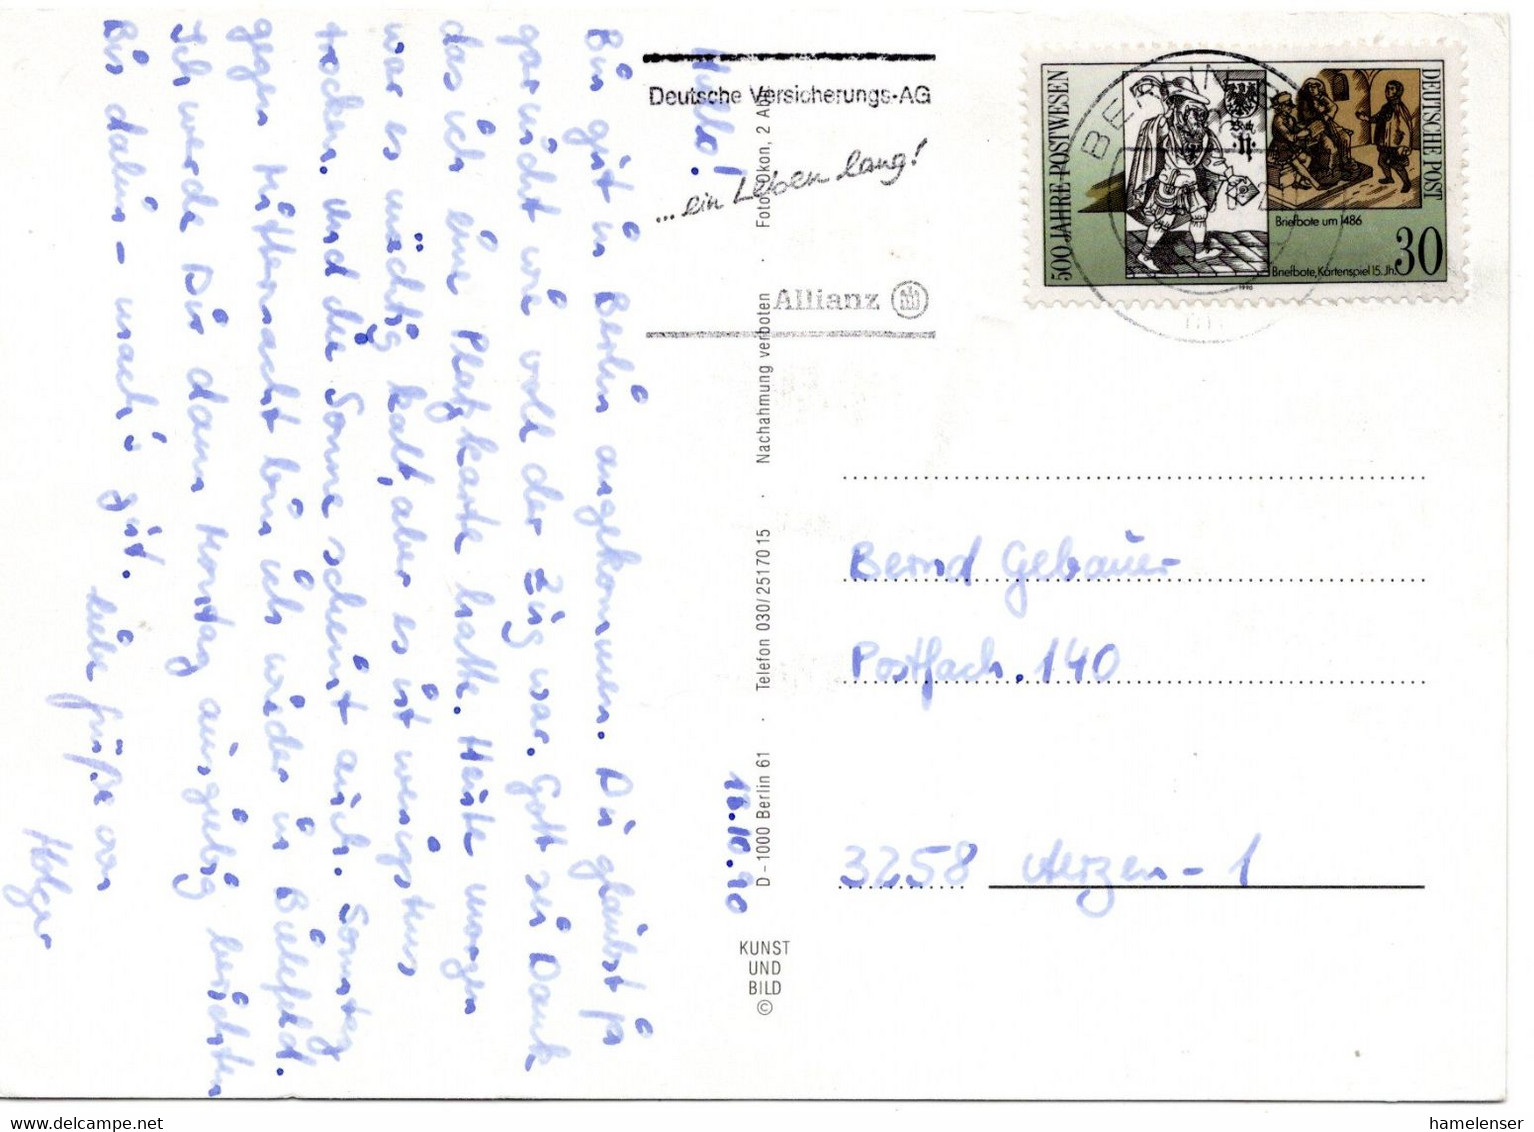 Hallo!
Bin gut in Berlin angekommen. Du glaubst ja
gar nicht wie voll der Zug war. Gott sei Dank
das ich eine Platzkarte hatte. Heute morgen
war es mächtig kalt, aber es ist wenigstens
trocken. Und die Sonne scheint auch. Sonntag
gegen Mitternacht bin ich wieder in Bielefeld.
Ich werde Dir dann Montag ausgiebig berichten
Bis dahin - mach's gut.
Liebe Grüße von
Holger
10.90
Deutsche Versicherungs-AG
... ein Leben lang!
Allianz
Foto: Okon, 2
Nachahmung verboten
Telefon 030/2517015
D-1000 Berlin 61
KUNST
UND
BILD
©
500 JAHRE POSTWESEN
DEUTSCHE POST
Briefbote um 1486
Briefbote, Kartenspiel 15. Jh.
30
1990
Bernd Gebauer
Postfach. 140
3258 Aerzen - 1
hamelenser
www.delcampe.net